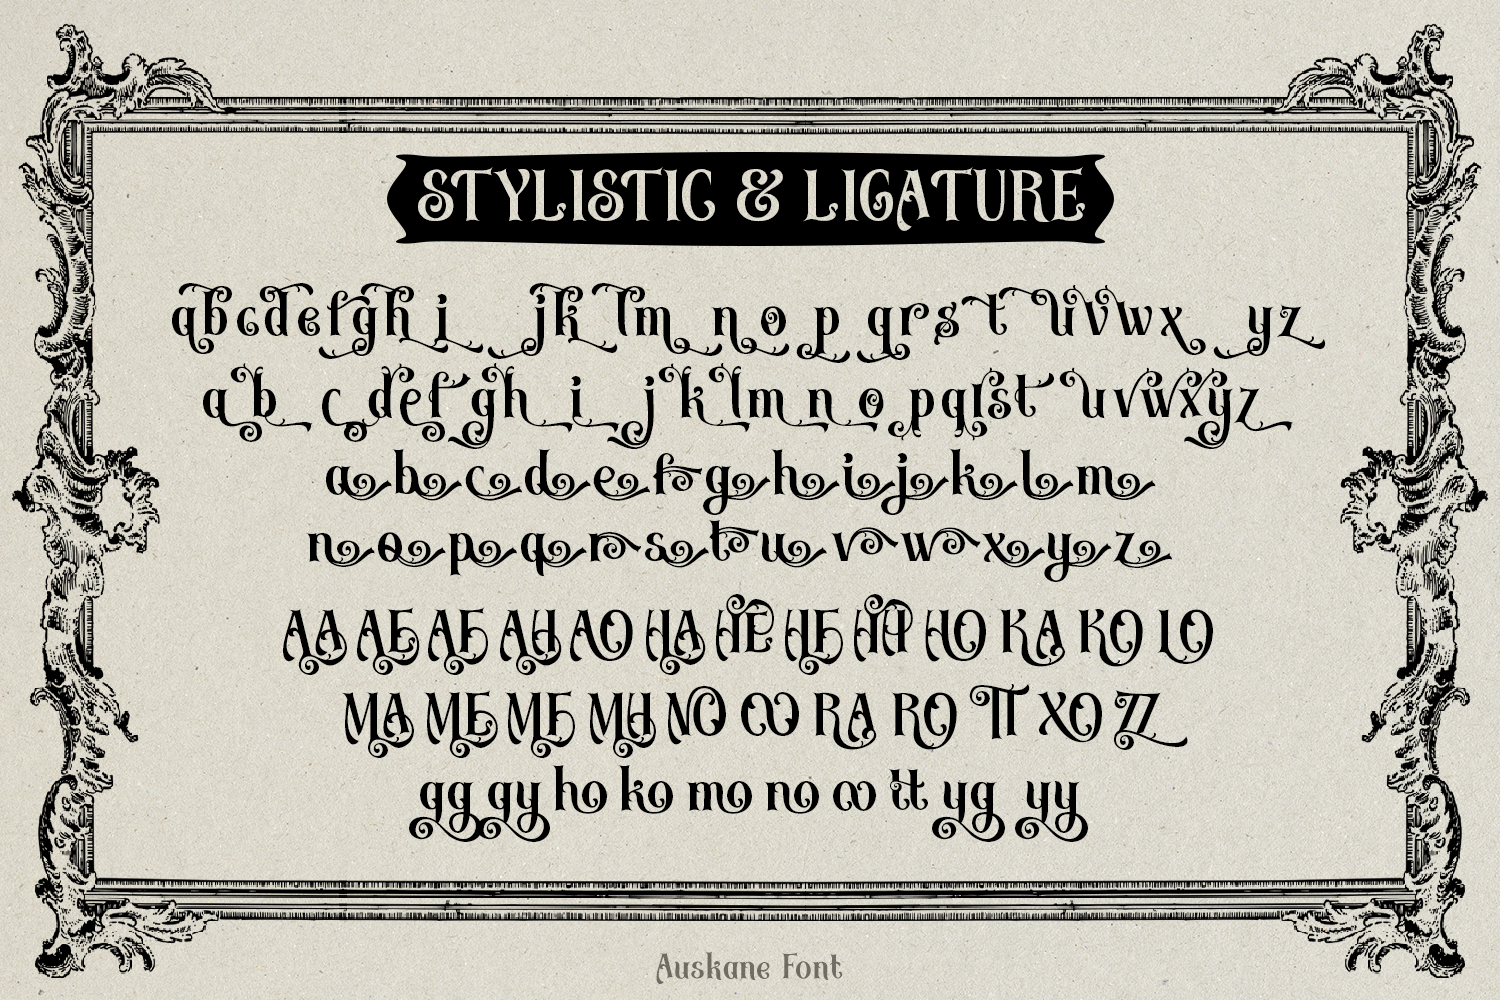 STYLISTIC & LIGATURE
abcdefghi jklmnopqrstuvwxyz
abcdefghijklmnopqrstuvwxyz
abcdefghijklm
nopqrstuvwxyz
AA AE AF AH AO HA HE HF HH HO KA KO LO
MA ME MF MH NO OO RA RO TT XO ZZ
gg gy ho ko mo no oo tt yg yy
Auskane Font